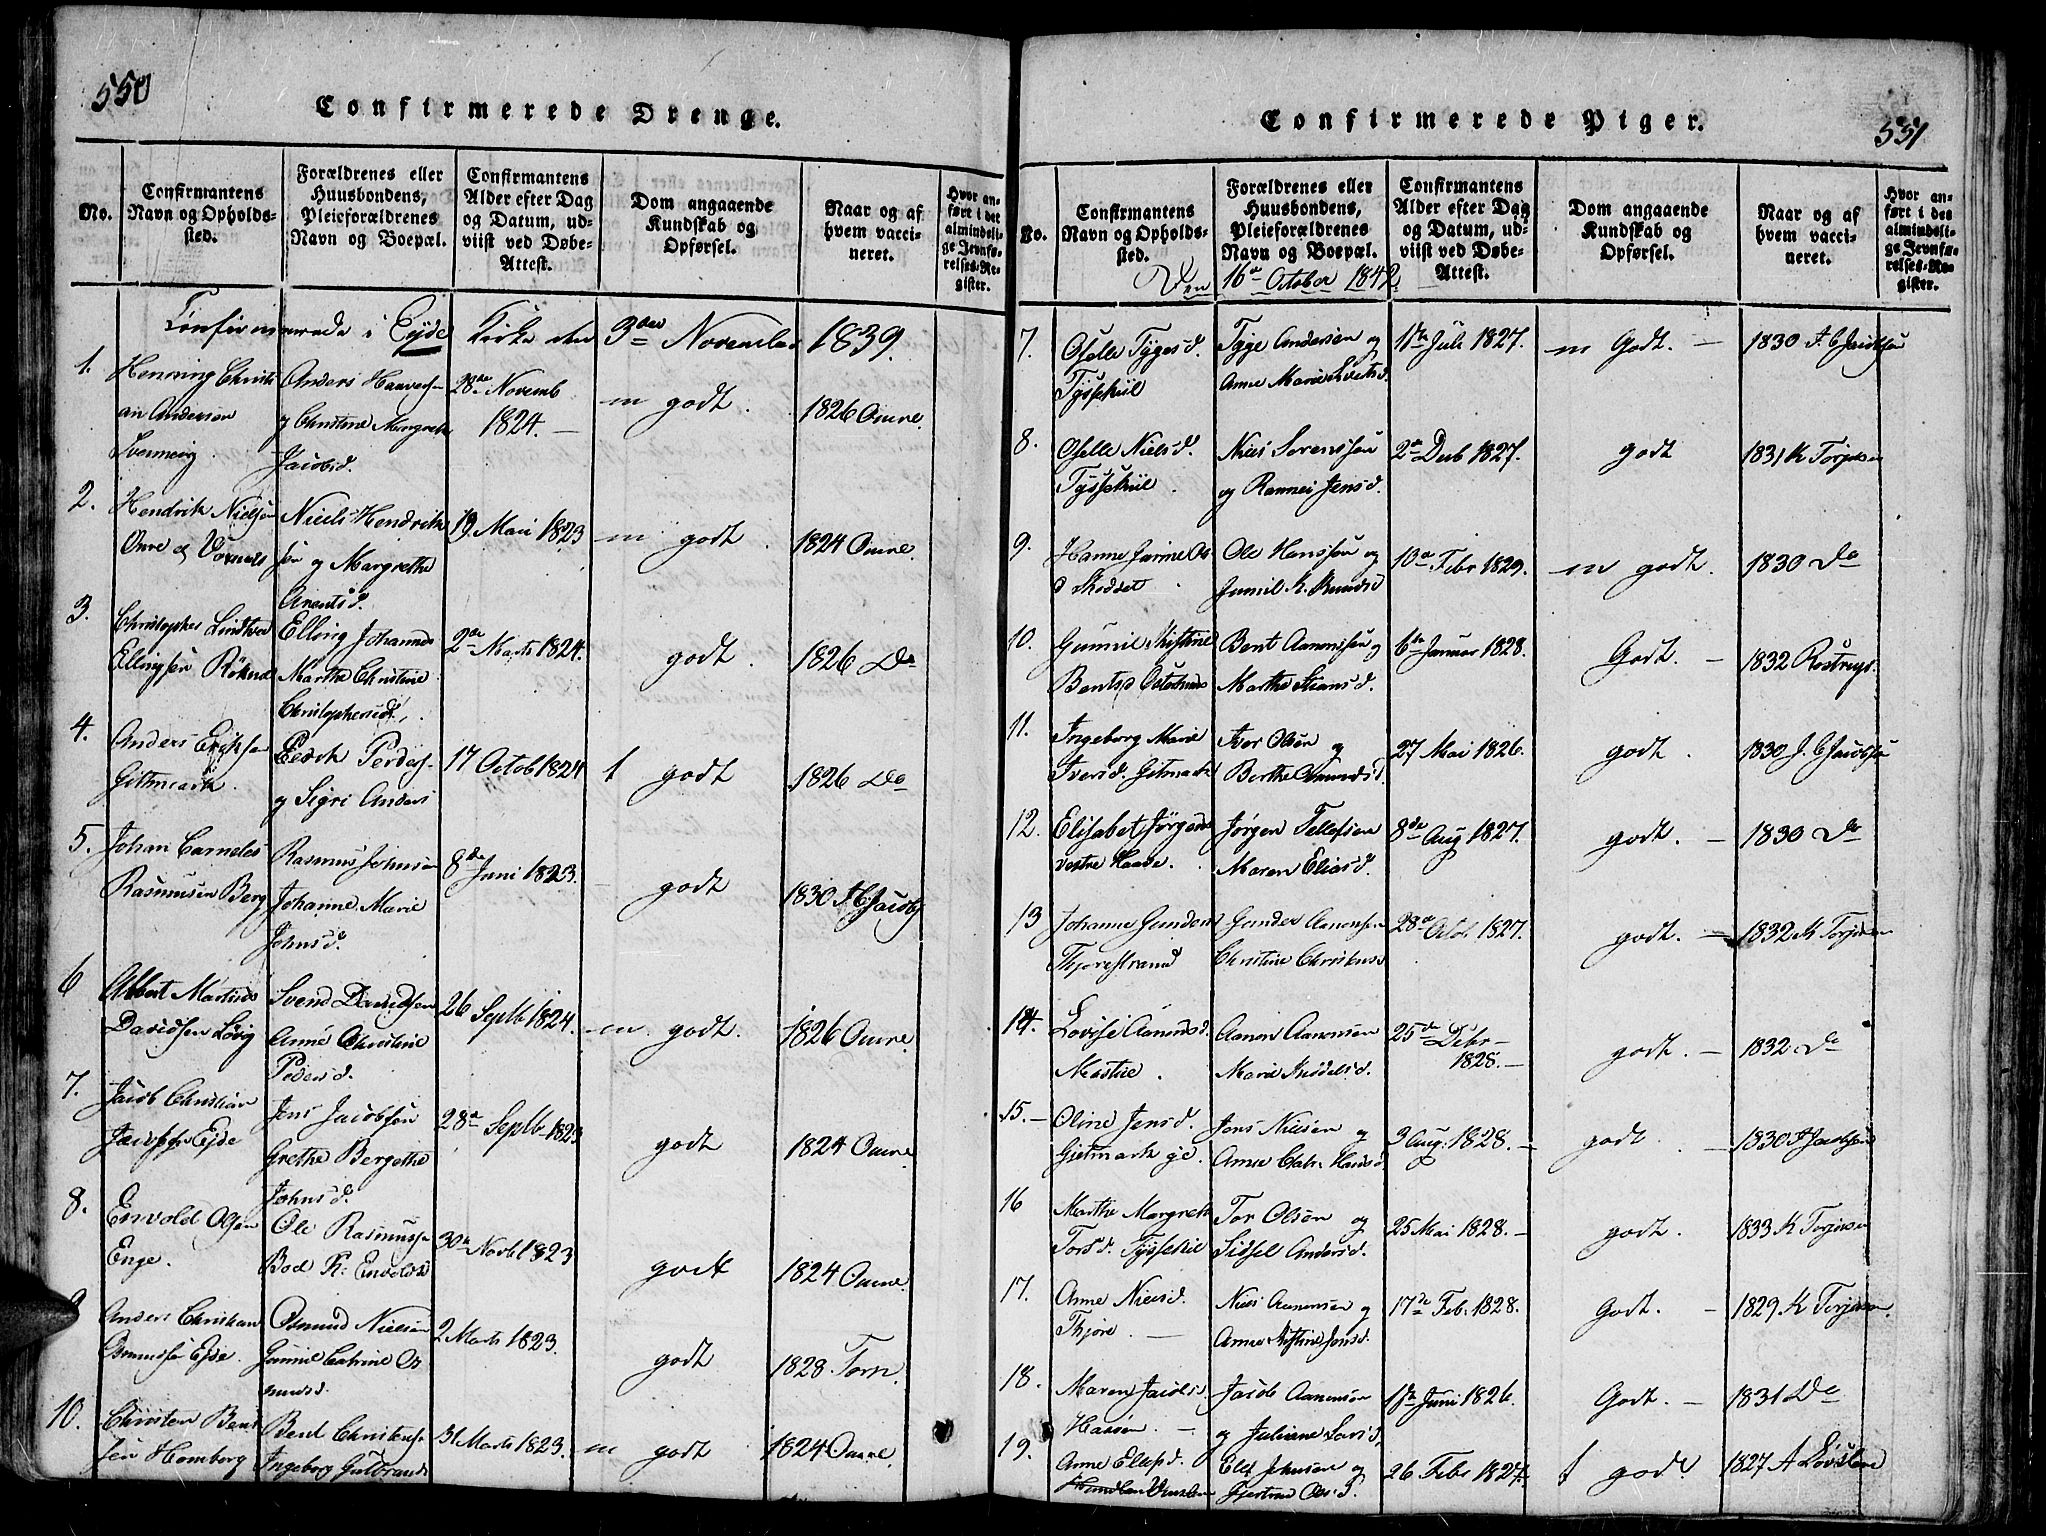 550
Confirmerede Drenge.
No.
Confirmantens
Navn og Opholds-
sted.
Forældrenes eller
Huusbondens,
Pleieforældrenes
Navn og Boepæl.
Confirmantens
Alder efter Dag
og Datum, ud-
viist ved Døbe-
Attest.
Dom angaaende
Kundskab og
Opførsel.
Naar og af
hvem vacci-
neret.
Hvor an-
ført i det
almindeli-
ge Jevnfø-
relses-Re-
gister.
Confirmerede i Eyde Kirke den 3die November 1839.
1.
Henning Christi
an Andersen
Anders Haavorsen
og Christine Margrethe
Jacobsd.
28de Novemb
1824. —
m godt.
1826 Omre.
2.
Hendrik Nielsen
Niels Hendrik
sen og Margrethe
Arentsd.
19 Mai 1823
m godt.
1824 Omre.
3.
Ellingsen
Elling Johannes
Marthe Christine
Christophersd.
2de Marts 1824.
godt.
1826 Do
4.
Anders Eriksen
Gittmark.
Perders
og Sigri Anders
17 Octob 1824
t godt
1826 Do
5.
Johan Carnelies
Rasmussen Berg
Rasmus Johnsen
Johanne Marie
Johnsd.
8de Juni 1823.
godt
1830 Jacobs
6
Albert Martines
Davidsen Løvig
Svend Davidsen
Anne Christine
Pedersd.
26 Septb 1824.
m godt.
1826 Omre.
7.
Jacob Christian
Eide
Jens Jacobsen
Grethe Bergethe
Johnsd.
28de Septb 1823
godt
1824 Omre.
8.
Envold Olsen
Enge.
Ole Rasmusse
Bod K: Envoldsd
30te Novb 1823
godt
1824 Omre.
9
Anders Christian
Osmundse Eide.
Osmund Nielsen
Gunnil Catrine Os
mundsd.
2 Marts 1823.
godt
1828 Torp.
10.
Christen Bent
sen Homborg
Bent Christens
Ingeborg Gulbrands
31 Marts 1823.
m godt
1824 Omre.
Confirmerede Piger.
551
No.
Confirmantens
Navn og Opholds-
sted.
Forældrenes eller
Huusbondens,
Pleieforældrenes
Navn og Boepæl.
Confirmantens
Alder efter Dag
og Datum, ud-
viist ved Døbe-
Attest.
Dom angaaende
Kundskab og
Opførsel.
Naar og af
hvem vacci-
neret.
Hvor an-
ført i det
almindeli-
ge Jevnfø-
relses-Re-
gister.
Den 16de October 1842
7.
Oselle Tygesd.
Tysskiil
Tyge Andersen og
Anne Marie
17de Juli 1827.
m Godt. —
1830
8.
Oselle Nielsd.
Tysskiil
Niels Sørenssen
og Rannei Jensd.
2de Decb 1827.
godt
1831 K Torjesen
9.
Hanne
Ole Hanssen og
Gunnil K. Knudsd
10de Febr 1829.
m godt.
1830 Do
10.
Gunnil Kistine
Bentsd
Bent Aanonssen og
Marthe
6te Januar 1828.
Godt. —
1832 Rostrup.
11.
Ingeborg Marie
Iversd. Gitmark
Iver Olsen og
Berthe
27 Mai 1826.
godt.
1830 J. C Jacobsen
12.
Elisabet Jørgens
vestre Haave.
Jørgen Tellefsen
Maren Eliasd.
8de Aug 1827.
godt. —
1830 Do
13
Johanne Gunders
Thjørestrand
Gunder Aanonsen
Christine Christensd
28de Octb 1827.
godt. —
1832 K Torjesen
14.
Lovise Aanonsd.
Aanon Aanonsen
Marie Knudelsd.
25de Debr —
1828. —
godt. —
1832 Do
15. —
Oline Jensd.
Gjetmark
Jens Nielsen og
3 Aug. 1828. —
godt. —
1830 Jacobsen
16
Marthe Margreth
Torsd. Tysskiil
Tor Olsen og
Sidsel Andersd.
25 Mai 1828. —
godt.
1833 K Torjesen
17.
Anne Nielsd.
Thjøre. —
Niels Aanonsen og
Anne Kistine Jensd.
17de Feb. 1828.
Godt. —
1829 K Torjesen
18.
Maren Jacobsd.
Hassøn. —
Jacob Aanonsen
og Juliane
17de Juni 1826.
Godt. —
1831 Do
19.
Anne Ellefsd.
Ellef Johnsen og
Gjertrud Olsd.
26 Febr 1827.
t godt
1827 A Løvsland